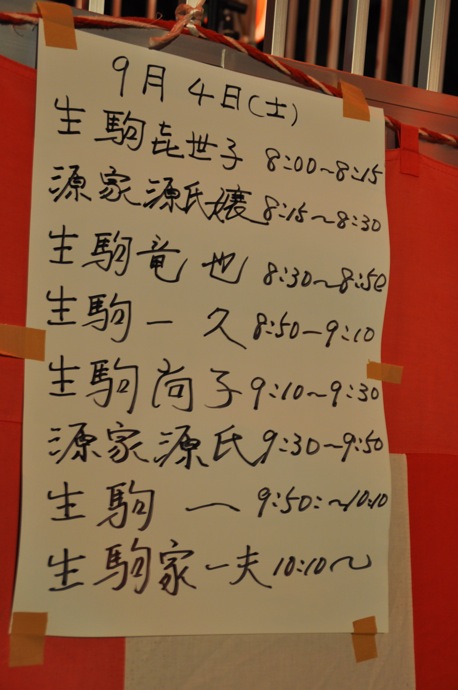 9月4日(土)
生駒㐂世子 8:00~8:15
源家源氏嬢 8:15~8:30
生駒竜也 8:30~8:50
生駒一久 8:50-9:10
生駒尚子 9:10~9:30
源家源氏 9:30~9:50
生駒一 9:50:~10:10
生駒家一夫 10:10~